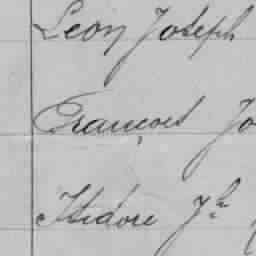 Léon Joseph
François Jo
Isidore Jh